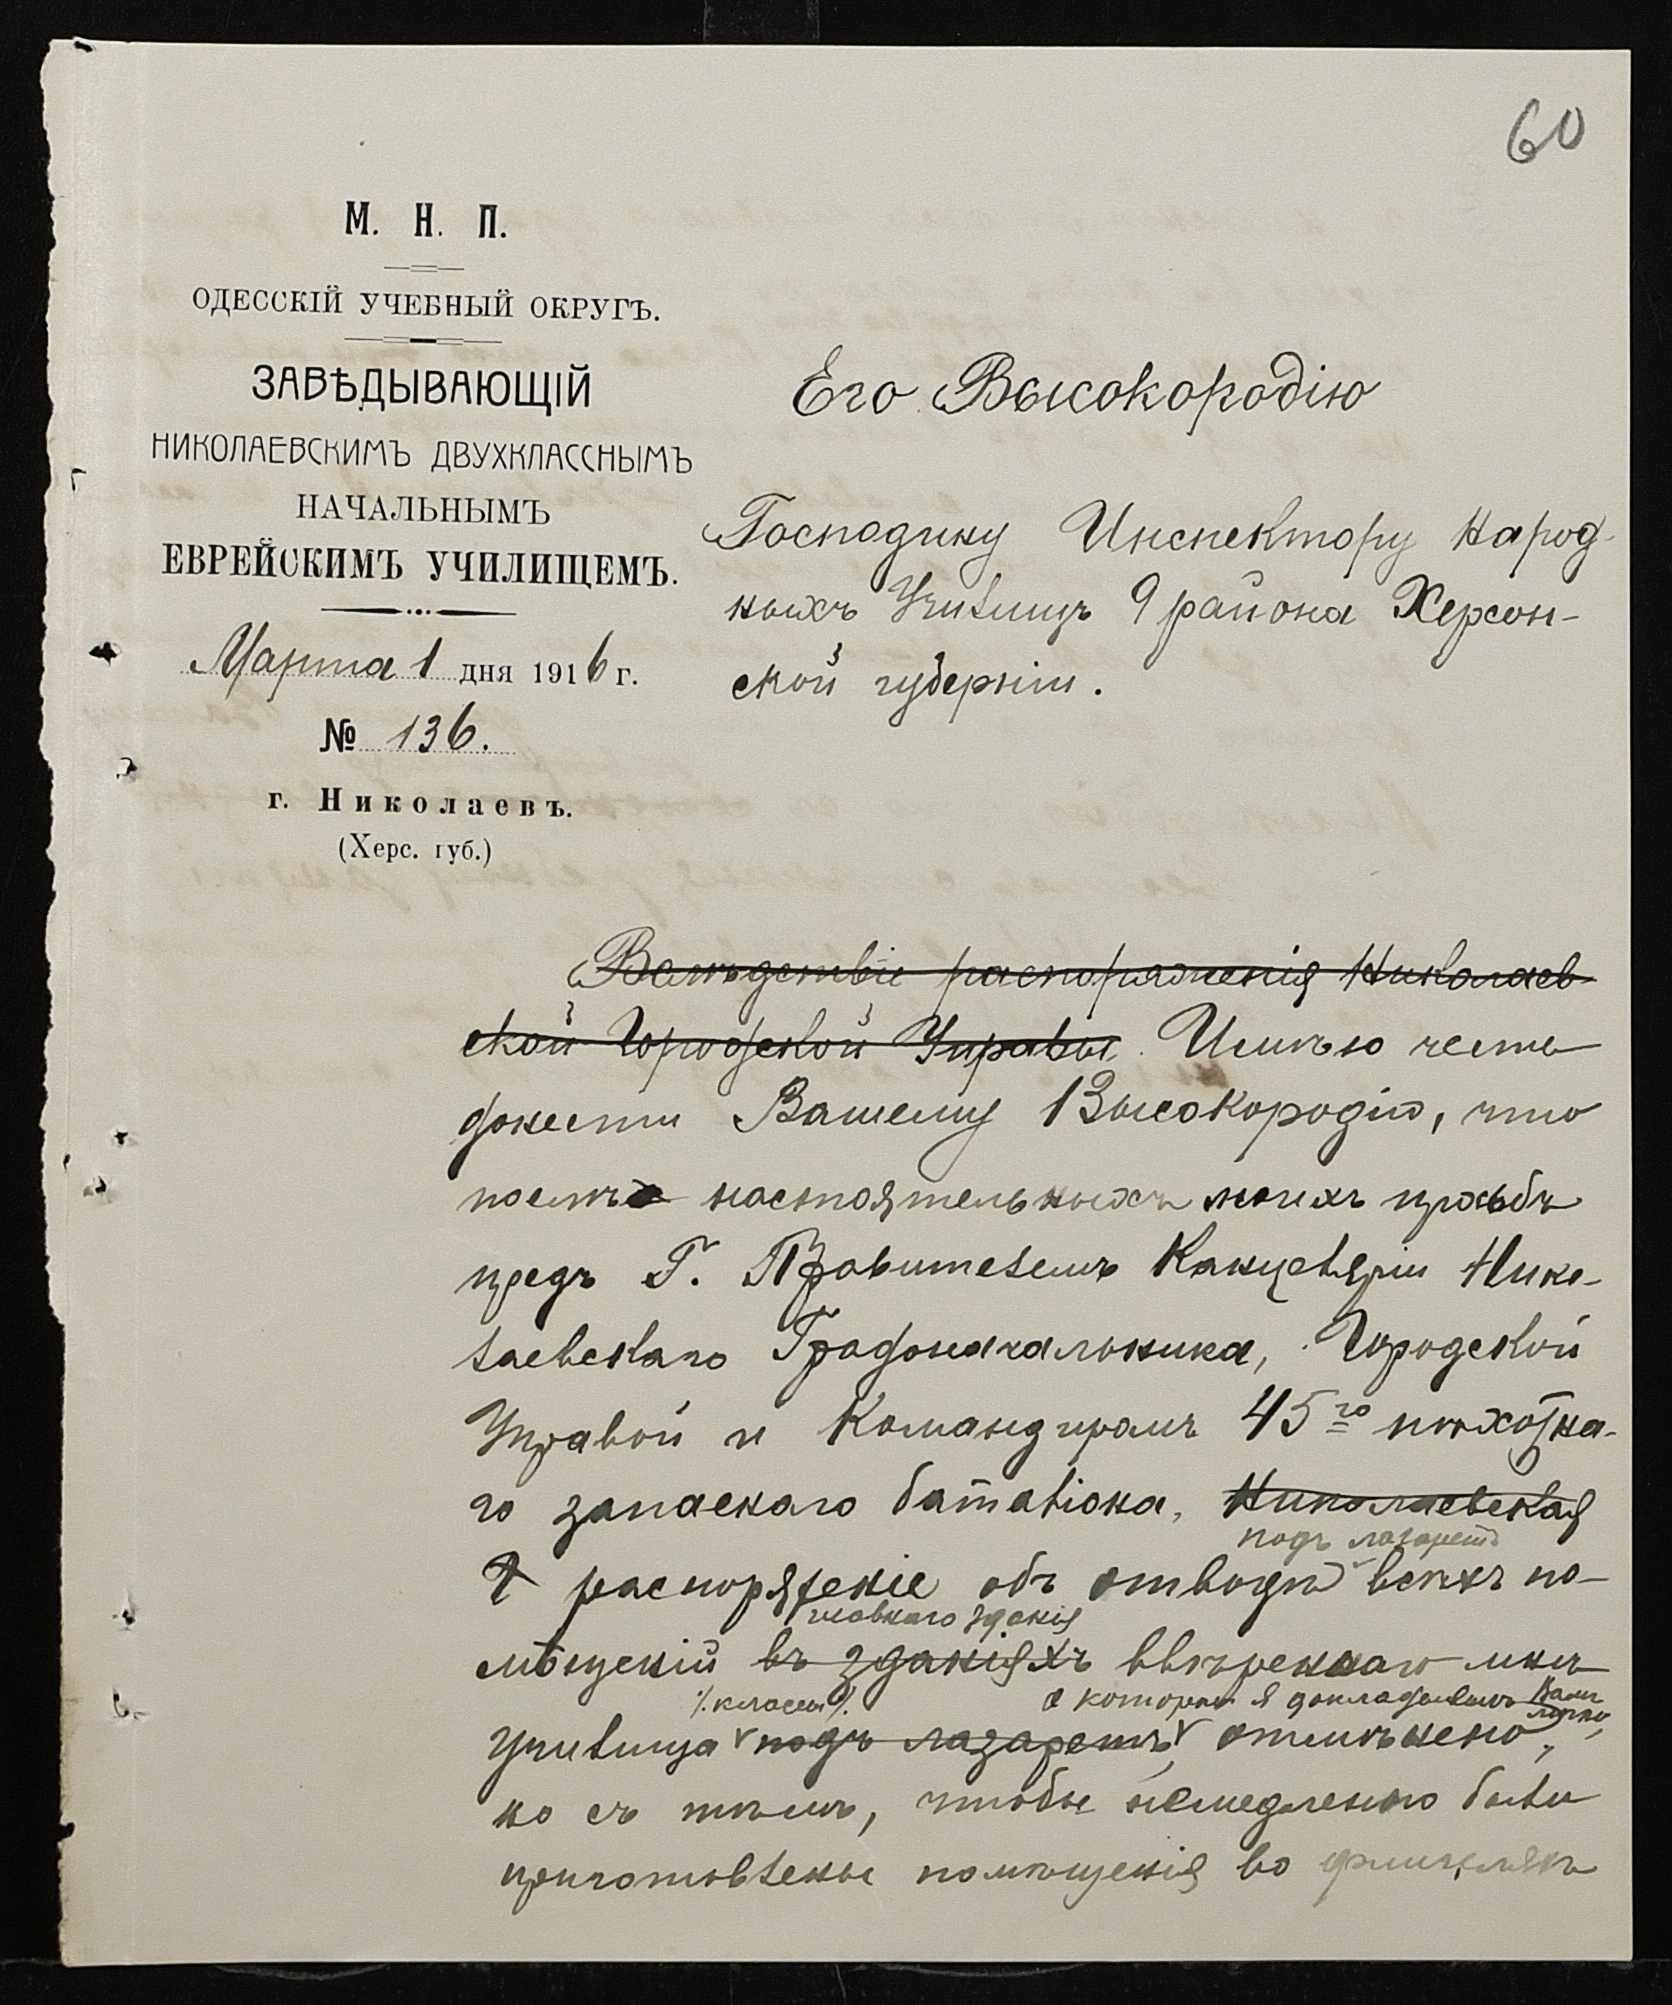 60
М. Н. П.
ОДЕССКІЙ УЧЕБНЫЙ ОКРУГЪ.
ЗАВѢДЫВАЮЩІЙ
НИКОЛАЕВСКИМЪ ДВУХКЛАССНЫМЪ
НАЧАЛЬНЫМЪ
ЕВРЕЙСКИМЪ УЧИЛИЩЕМЪ.
Марта 1 дня 1916 г.
№ 136.
г. Николаевъ.
(Херс. губ.)
Его Высокородію
Господину Инспектору Народ-
ныхъ Училищъ 9 района Херсон-
ской губерніи.
Вслѣдствіе распоряженія Николаев-
ской Городской Управы Имѣю честь
донести Вашему Высокородію, что
послѣ настоятельныхъ моихъ просьбъ
предъ Г. Правителемъ Канцеляріи Нико-
лаевскаго Градоначальника, Городской
Управой и Командиромъ 45го пѣхотна-
го запаснаго баталіона, Николаевская
подъ лазаретъ
распоряженіе объ отводѣ всѣхъ по-
главнаго зданія
мѣщеній въ зданіяхъ ввѣреннаго мнѣ
/классы/. о которомъ я докладывалъ Вамъ лично,
Училища подъ лазаретъ отмѣнено,
но съ тѣмъ, чтобы немедленно были
приготовлены помѣщенія во флигеляхъ